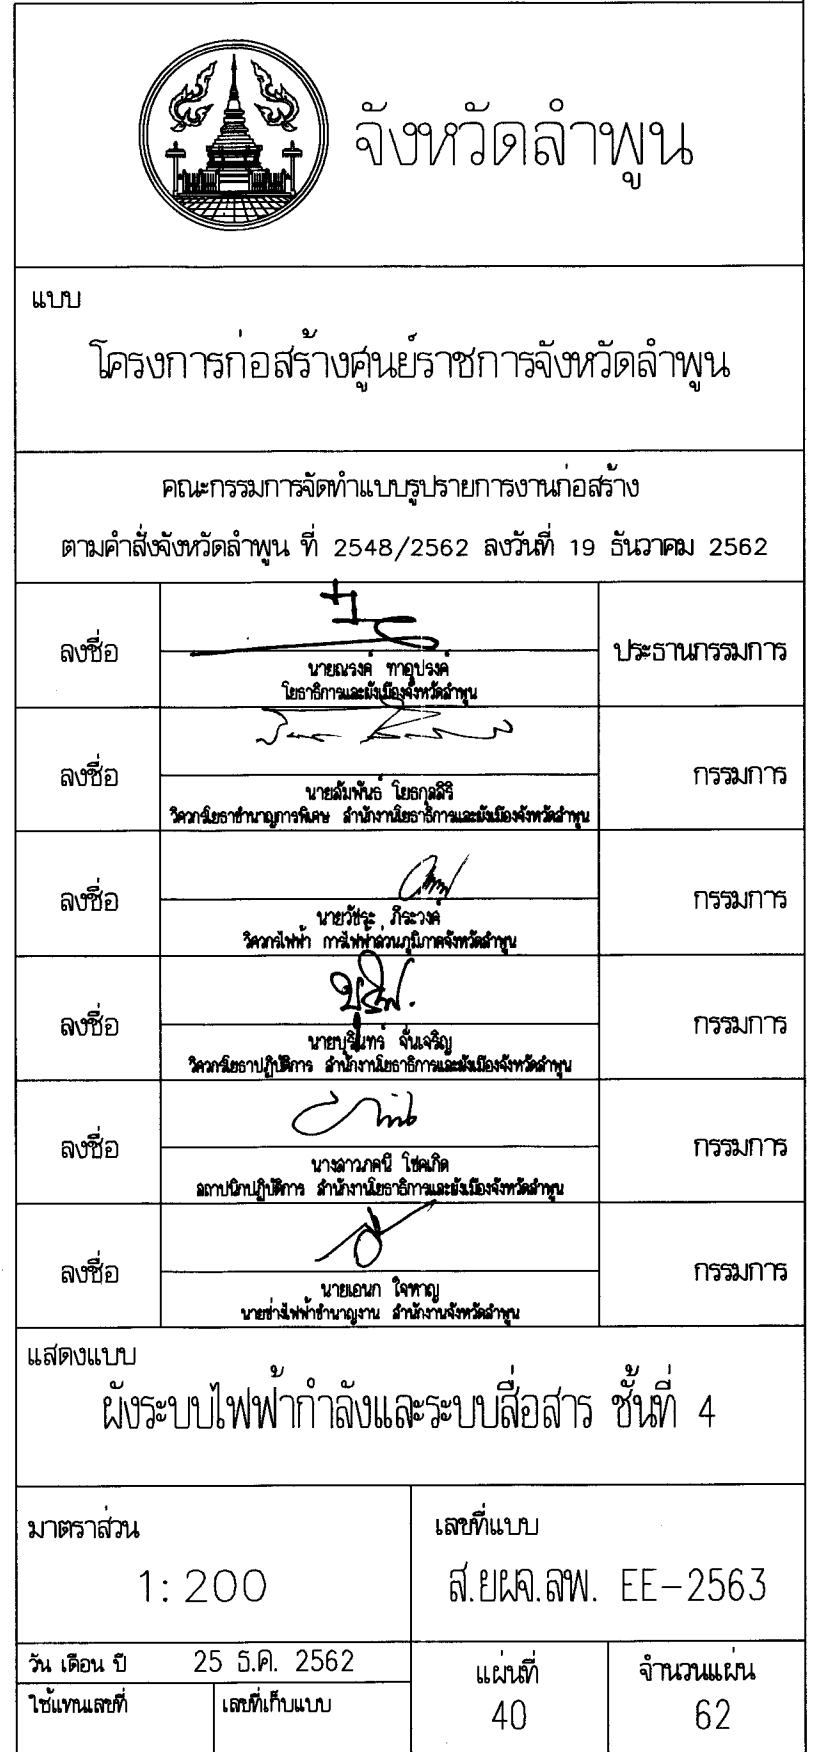 จังหวัดลำพูน
แบบ
โครงการก่อสร้างศูนย์ราชการจังหวัดลำพูน
คณะกรรมการจัดทำแบบรูปรายการงานก่อสร้าง
ตามคำสั่งจังหวัดลำพูน ที่ 2548/2562 ลงวันที่ 19 ธันวาคม 2562
ลงชื่อ
นายณรงค์ ทาอุปรงค์
โยธาธิการและผังเมืองจังหวัดลำพูน
ประธานกรรมการ
ลงชื่อ
นายสัมพันธ์ โยธกุลสิริ
วิศวกรโยธาชำนาญการพิเศษ สำนักงานโยธาธิการและผังเมืองจังหวัดลำพูน
กรรมการ
ลงชื่อ
นายวัชระ ภิระวงค์
วิศวกรไฟฟ้า การไฟฟ้าส่วนภูมิภาคจังหวัดลำพูน
กรรมการ
ลงชื่อ
นายบุรินทร์ จั่นเจริญ
วิศวกรโยธาปฏิบัติการ สำนักงานโยธาธิการและผังเมืองจังหวัดลำพูน
กรรมการ
ลงชื่อ
นางสาวภคนี โชคเกิด
สถาปนิกปฏิบัติการ สำนักงานโยธาธิการและผังเมืองจังหวัดลำพูน
กรรมการ
ลงชื่อ
นายเอนก ใจหาญ
นายช่างไฟฟ้าชำนาญงาน สำนักงานจังหวัดลำพูน
กรรมการ
แสดงแบบ
ผังระบบไฟฟ้ากำลังและระบบสื่อสาร ชั้นที่ 4
มาตราส่วน
1:200
เลขที่แบบ
ส.ยผจ.ลพ. EE-2563
วัน เดือน ปี 25 ธ.ค. 2562
ใช้แทนเลขที่
เลขที่เก็บแบบ
แผ่นที่
40
จำนวนแผ่น
62